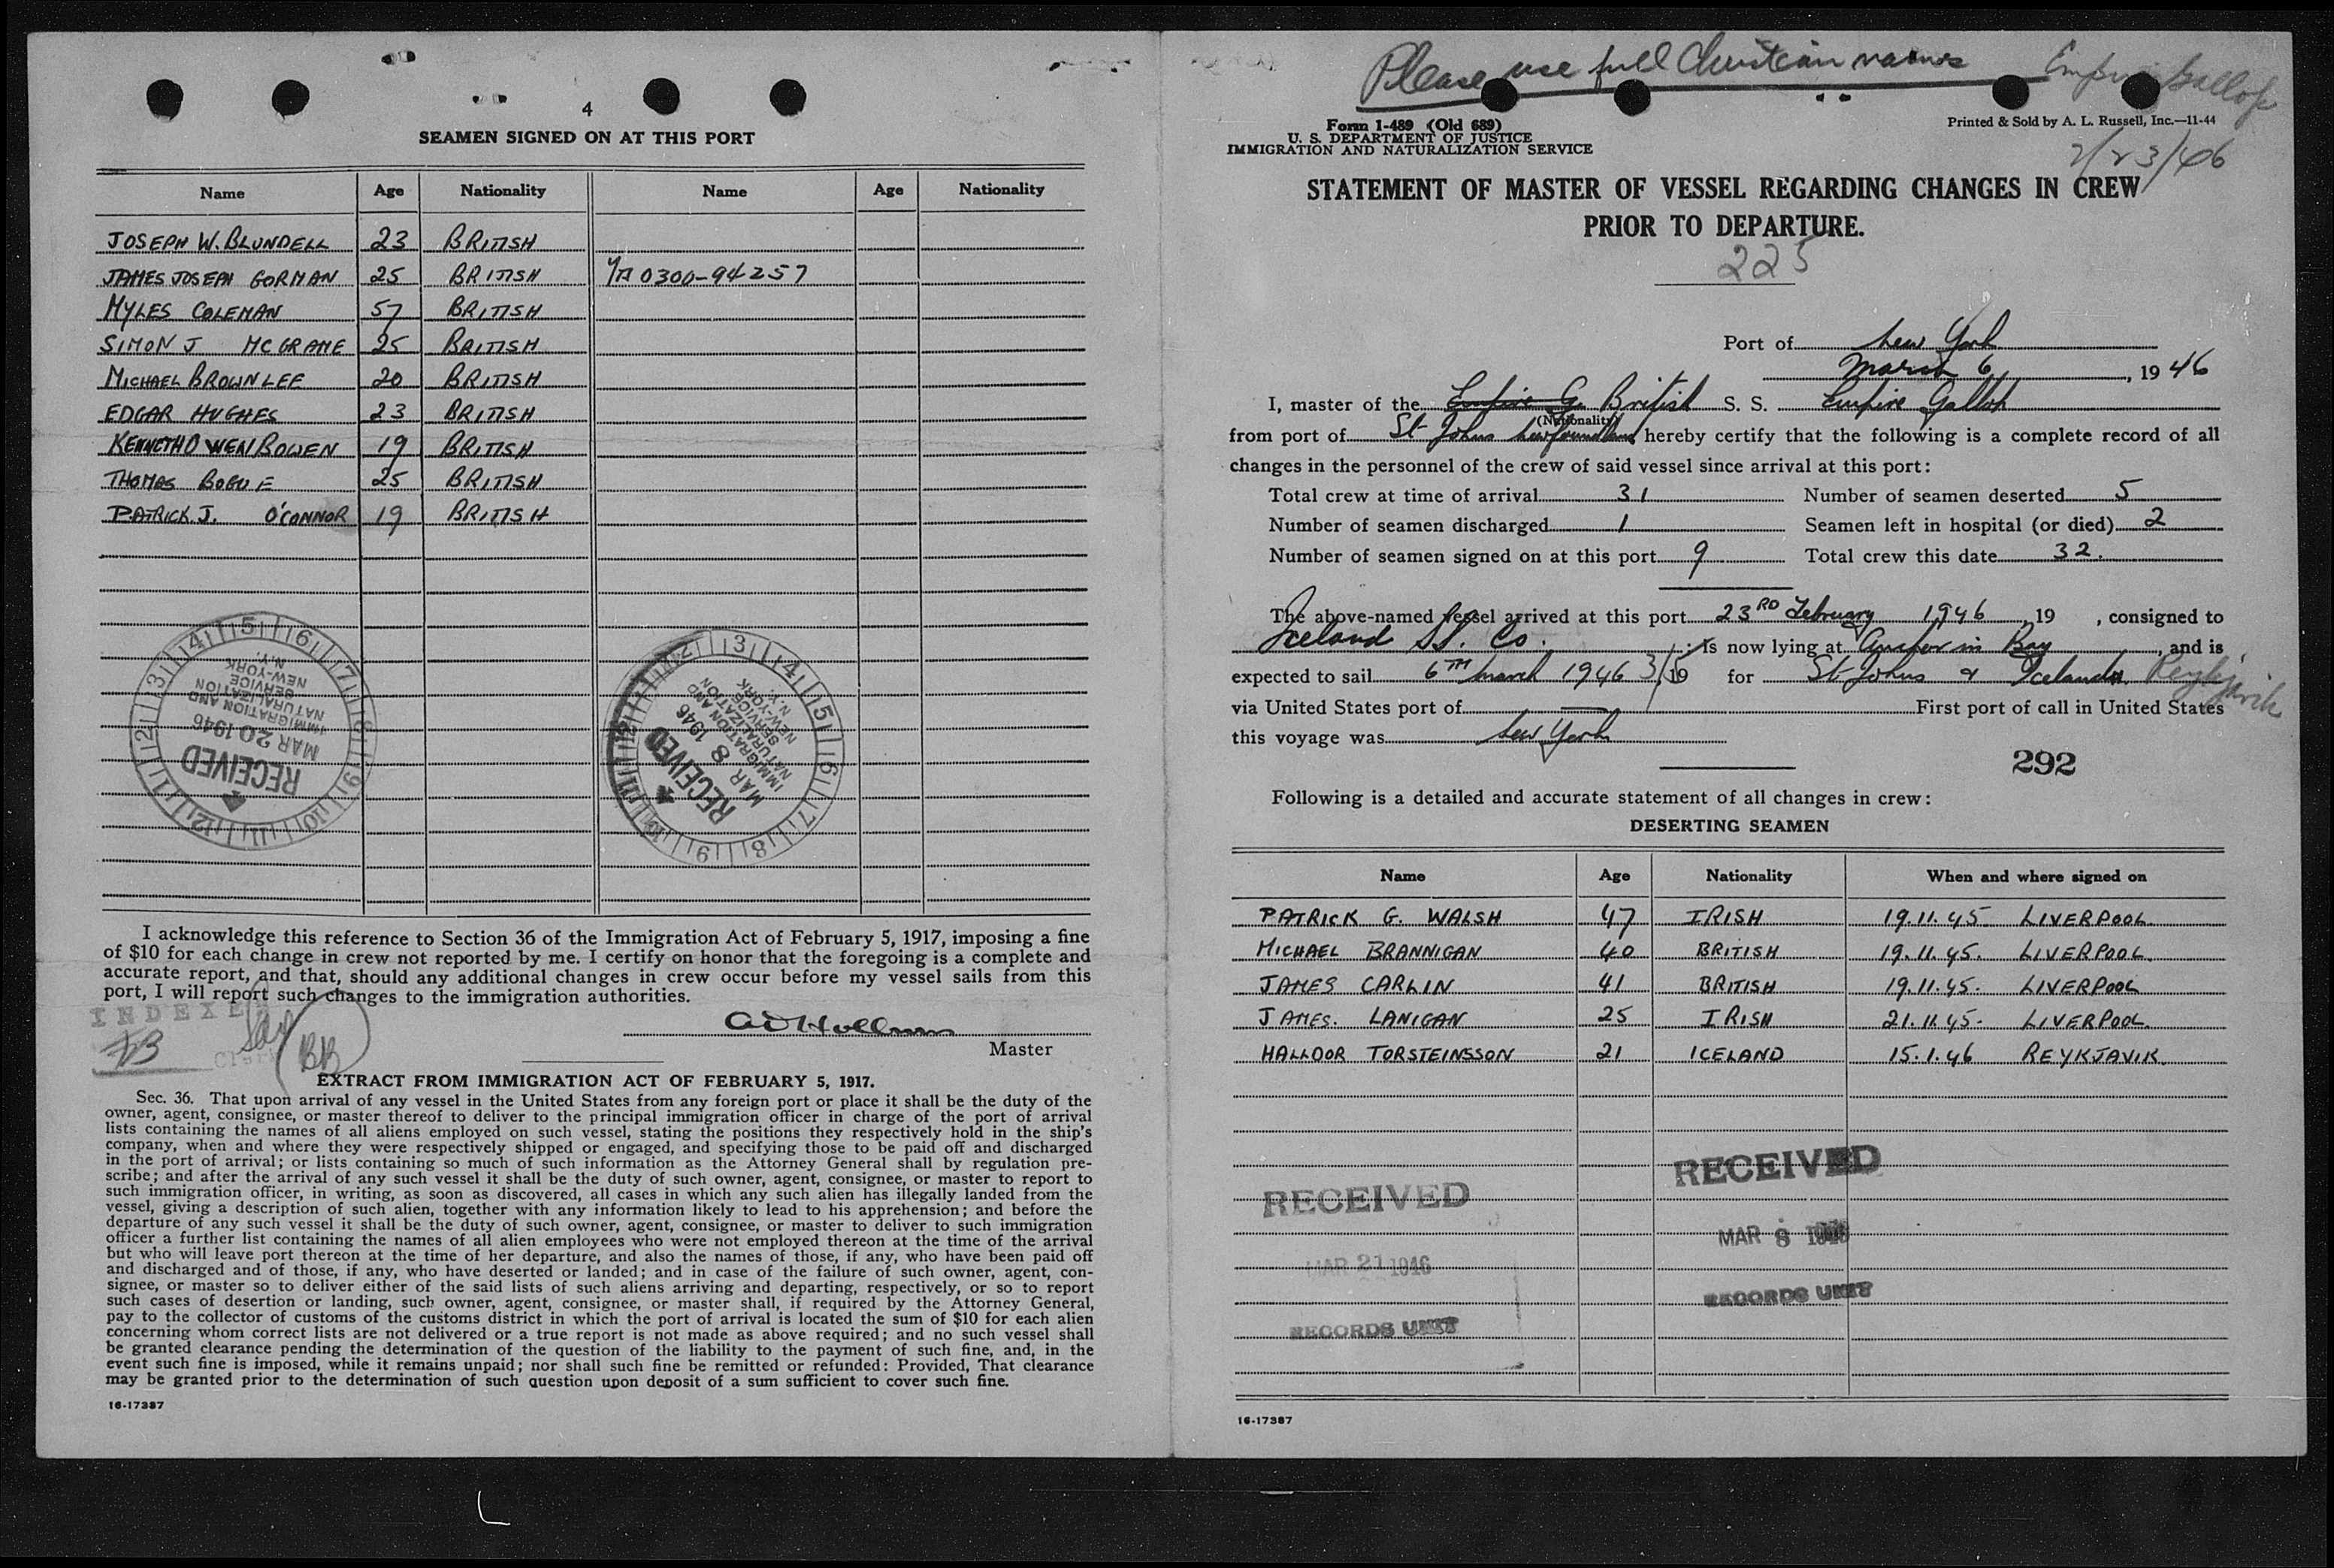 4
SEAMEN SIGNED ON AT THIS PORT
Name Age Nationality Name Age Nationality
JOSEPH W. BLUNDELL 23 BRITISH
JAMES JOSEPH GORMAN 25 BRITISH 0300-94257
MYLES COLEMAN 57 BRITISH
SIMON J MCGRAME 25 BRITISH
MICHAEL BROWNLEE 20 BRITISH
EDGAR HUGHES 23 BRITISH
KENNETH OWEN BOWEN 19 BRITISH
THOMAS BOGUE 25 BRITISH
PATRICK J. O'CONNOR 19 BRITISH
RECEIVED
MAR 20 1946
IMMIGRATION AND
NATURALIZATION
SERVICE
NEW-YORK
N.Y.
RECEIVED
MAR 8 1946
IMMIGRATION AND
NATURALIZATION
SERVICE
NEW-YORK
N.Y.
I acknowledge this reference to Section 36 of the Immigration Act of February 5, 1917, imposing a fine
of $10 for each change in crew not reported by me. I certify on honor that the foregoing is a complete and
accurate report, and that, should any additional changes in crew occur before my vessel sails from this
port, I will report such changes to the immigration authorities.
INDEXED
BB
Clerk
Master
EXTRACT FROM IMMIGRATION ACT OF FEBRUARY 5, 1917.
Sec. 36. That upon arrival of any vessel in the United States from any foreign port or place it shall be the duty of the
owner, agent, consignee, or master thereof to deliver to the principal immigration officer in charge of the port of arrival
lists containing the names of all aliens employed on such vessel, stating the positions they respectively hold in the ship's
company, when and where they were respectively shipped or engaged, and specifying those to be paid off and discharged
in the port of arrival; or lists containing so much of such information as the Attorney General shall by regulation pre-
scribe; and after the arrival of any such vessel it shall be the duty of such owner, agent, consignee, or master to report to
such immigration officer, in writing, as soon as discovered, all cases in which any such alien has illegally landed from the
vessel, giving a description of such alien, together with any information likely to lead to his apprehension; and before the
departure of any such vessel it shall be the duty of such owner, agent, consignee, or master to deliver to such immigration
officer a further list containing the names of all alien employees who were not employed thereon at the time of the arrival
but who will leave port thereon at the time of her departure, and also the names of those, if any, who have been paid off
and discharged and of those, if any, who have deserted or landed; and in case of the failure of such owner, agent, con-
signee, or master so to deliver either of the said lists of such aliens arriving and departing, respectively, or so to report
such cases of desertion or landing, such owner, agent, consignee, or master shall, if required by the Attorney General,
pay to the collector of customs of the customs district in which the port of arrival is located the sum of $10 for each alien
concerning whom correct lists are not delivered or a true report is not made as above required; and no such vessel shall
be granted clearance pending the determination of the question of the liability to the payment of such fine, and, in the
event such fine is imposed, while it remains unpaid; nor shall such fine be remitted or refunded: Provided, That clearance
may be granted prior to the determination of such question upon deposit of a sum sufficient to cover such fine.
16-17387
Please use full Christian names
Empire Gallop
2/23/46
Form I-489 (Old 689)
U. S. DEPARTMENT OF JUSTICE
IMMIGRATION AND NATURALIZATION SERVICE
Printed & Sold by A. L. Russell, Inc.—11-44
STATEMENT OF MASTER OF VESSEL REGARDING CHANGES IN CREW
PRIOR TO DEPARTURE.
225
Port of New York
March 6, 1946
I, master of the Empire G. British S. S. Empire Gallop
(Nationality)
from port of St Johns Newfoundland hereby certify that the following is a complete record of all
changes in the personnel of the crew of said vessel since arrival at this port:
Total crew at time of arrival 31 Number of seamen deserted 5
Number of seamen discharged 1 Seamen left in hospital (or died) 2
Number of seamen signed on at this port 9 Total crew this date 32.
The above-named vessel arrived at this port 23RD February 1946, 19 , consigned to
Iceland SS. Co. ; is now lying at Anchor in Bay, and is
expected to sail 6TH March 1946 3/5, 19 for St Johns & Iceland. Reykjavik
via United States port of — First port of call in United States
this voyage was New York
292
Following is a detailed and accurate statement of all changes in crew:
DESERTING SEAMEN
Name Age Nationality When and where signed on
PATRICK G. WALSH 47 IRISH 19.11.45 LIVERPOOL
MICHAEL BRANNIGAN 40 BRITISH 19.11.45. LIVERPOOL.
JAMES CARLIN 41 BRITISH 19.11.45. LIVERPOOL
JAMES. LANIGAN 25 IRISH 21.11.45. LIVERPOOL.
HALLDOR TORSTEINSSON 21 ICELAND 15.1.46 REYKJAVIK.
RECEIVED
MAR 8 1946
RECORDS UNIT
RECEIVED
MAR 21 1946
RECORDS UNIT
16-17387